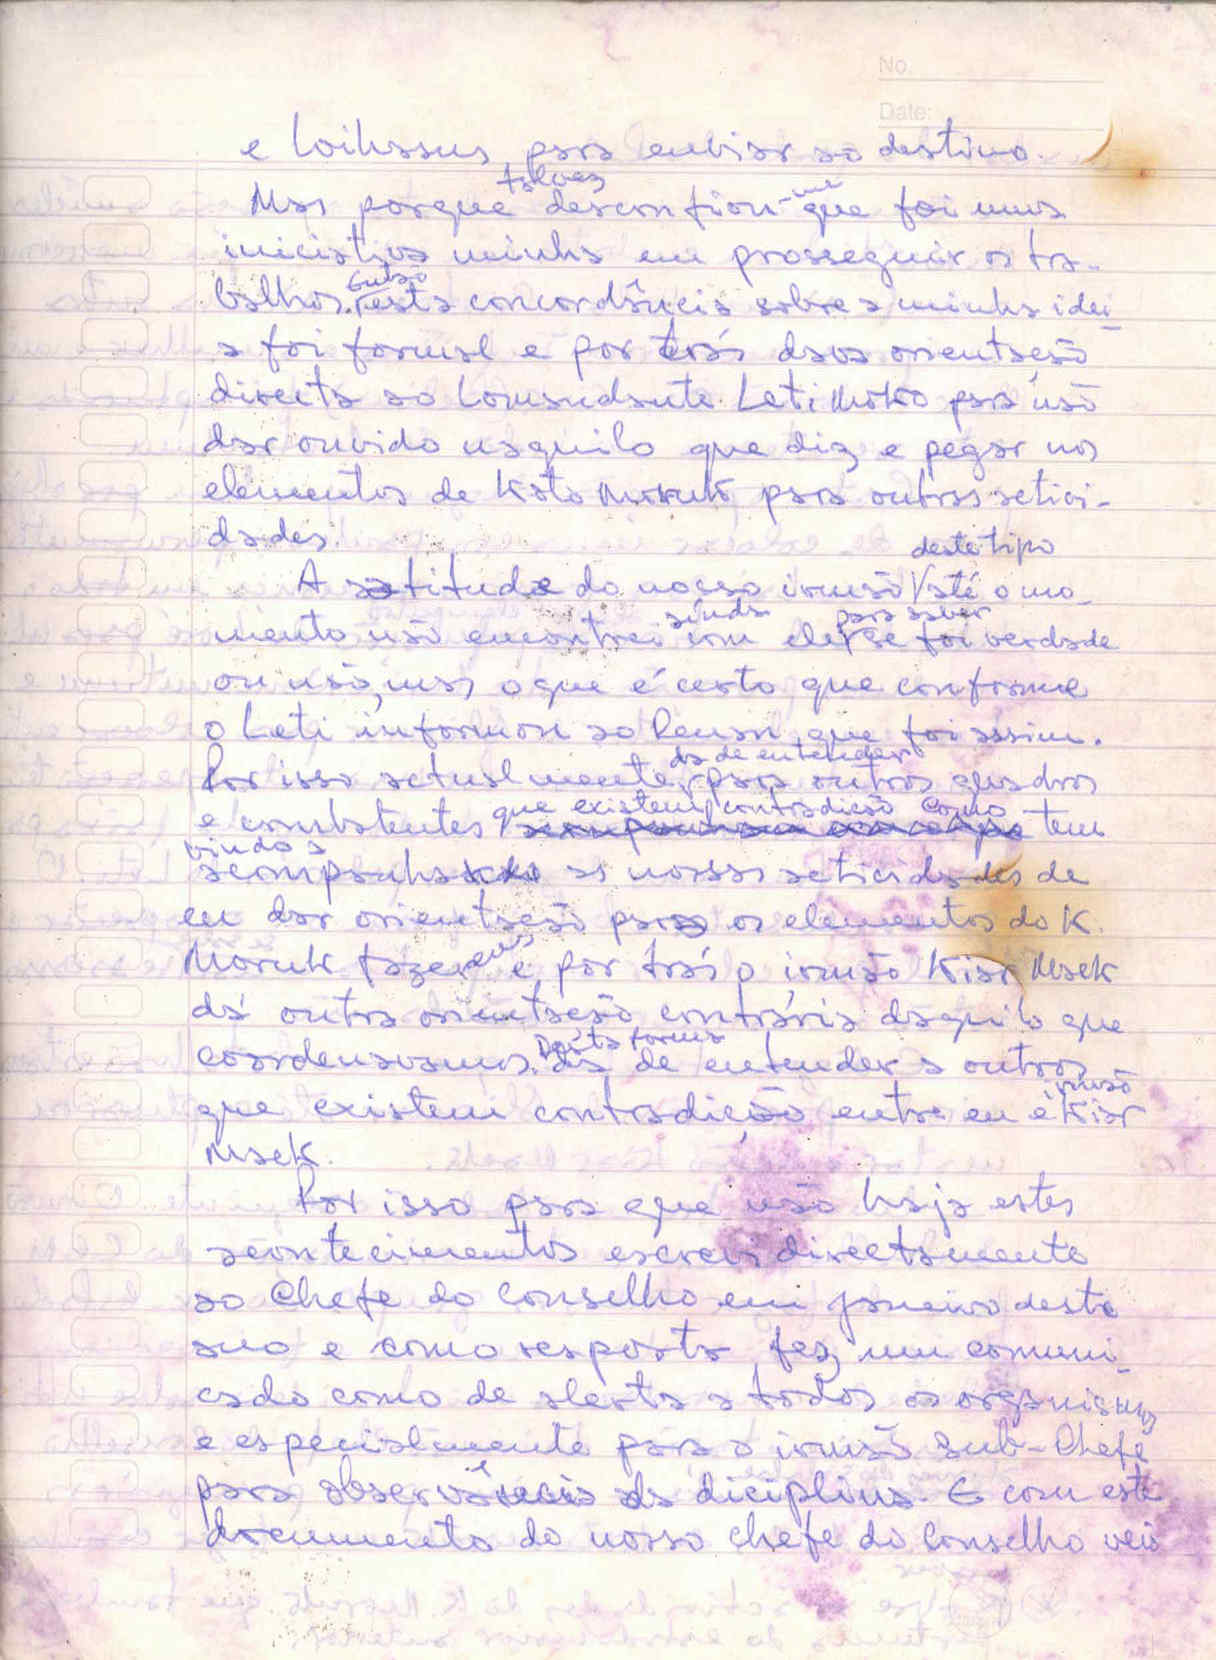 No.
Date:
e Coilassus, para enviar ao destino.
talvez me
Mas porque desconfiou-que foi uma
iniciativa minha em prosseguir os tra-
Então
balhos. esta concordância sobre a minha idei
a foi formal e por trás dava orientação
directa ao Comandante Leti Moko para não
dar ouvido naquilo que diz e pegar nos
elementos de Kota Moruk para outras activi-
dades.
deste tipo
A atitude do nosso irmão até o mo-
ainda para saber
mento não encontrei com ele se foi verdade
ou não, mas o que é certo que conforme
o Leti informou ao Renan que foi assim.
da de entender
Por isso actualmente, para outros quadros
que existem contradição Como
e combatentes tem
vindo a
acompanhado as nossas actividades de
eu dar orientação para os elementos do K.
Moruk fazerem e por trás o irmão Kiar Msek
dá outra orientação contrária daquilo que
Desta forma
coordenavamos. dá de entender a outros
irmão
que existem contradição entre eu e Kiar
Msek.
Por isso para que não haja estes
acontecimentos escrevi directamente
ao Chefe do Conselho em janeiro deste
ano e como resposta, fez um comuni-
cado como de alerta a todos os organismos
e especialmente para o irmão Sub-Chefe
para observância da diciplina. E com este
documento do nosso chefe do Conselho veio